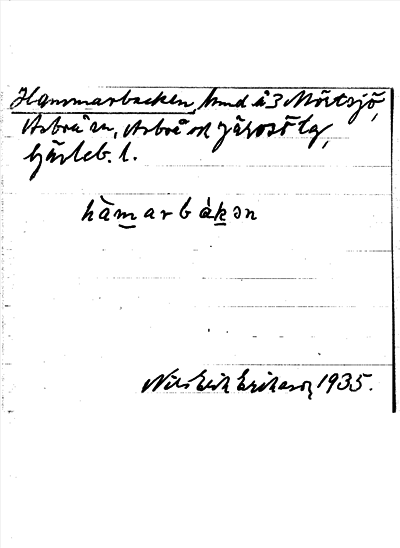 Hammarbacken, hmd å 3 Mörtsjö,
Arbrå sn, Arbrå och Järvsö tg,
Gävleb. l.
hàmarbákən
Nils Erik Eriksson 1935.